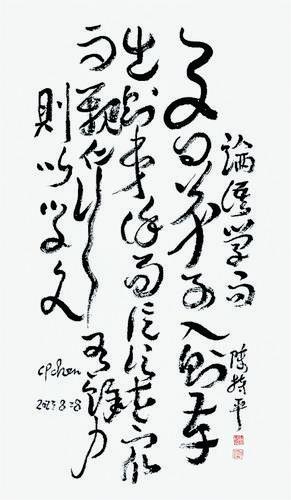 論語学而
陳持平
子曰弟子入則孝
出則弟謹而信汎愛眾
而親仁行有餘力
則以学文
CPChen